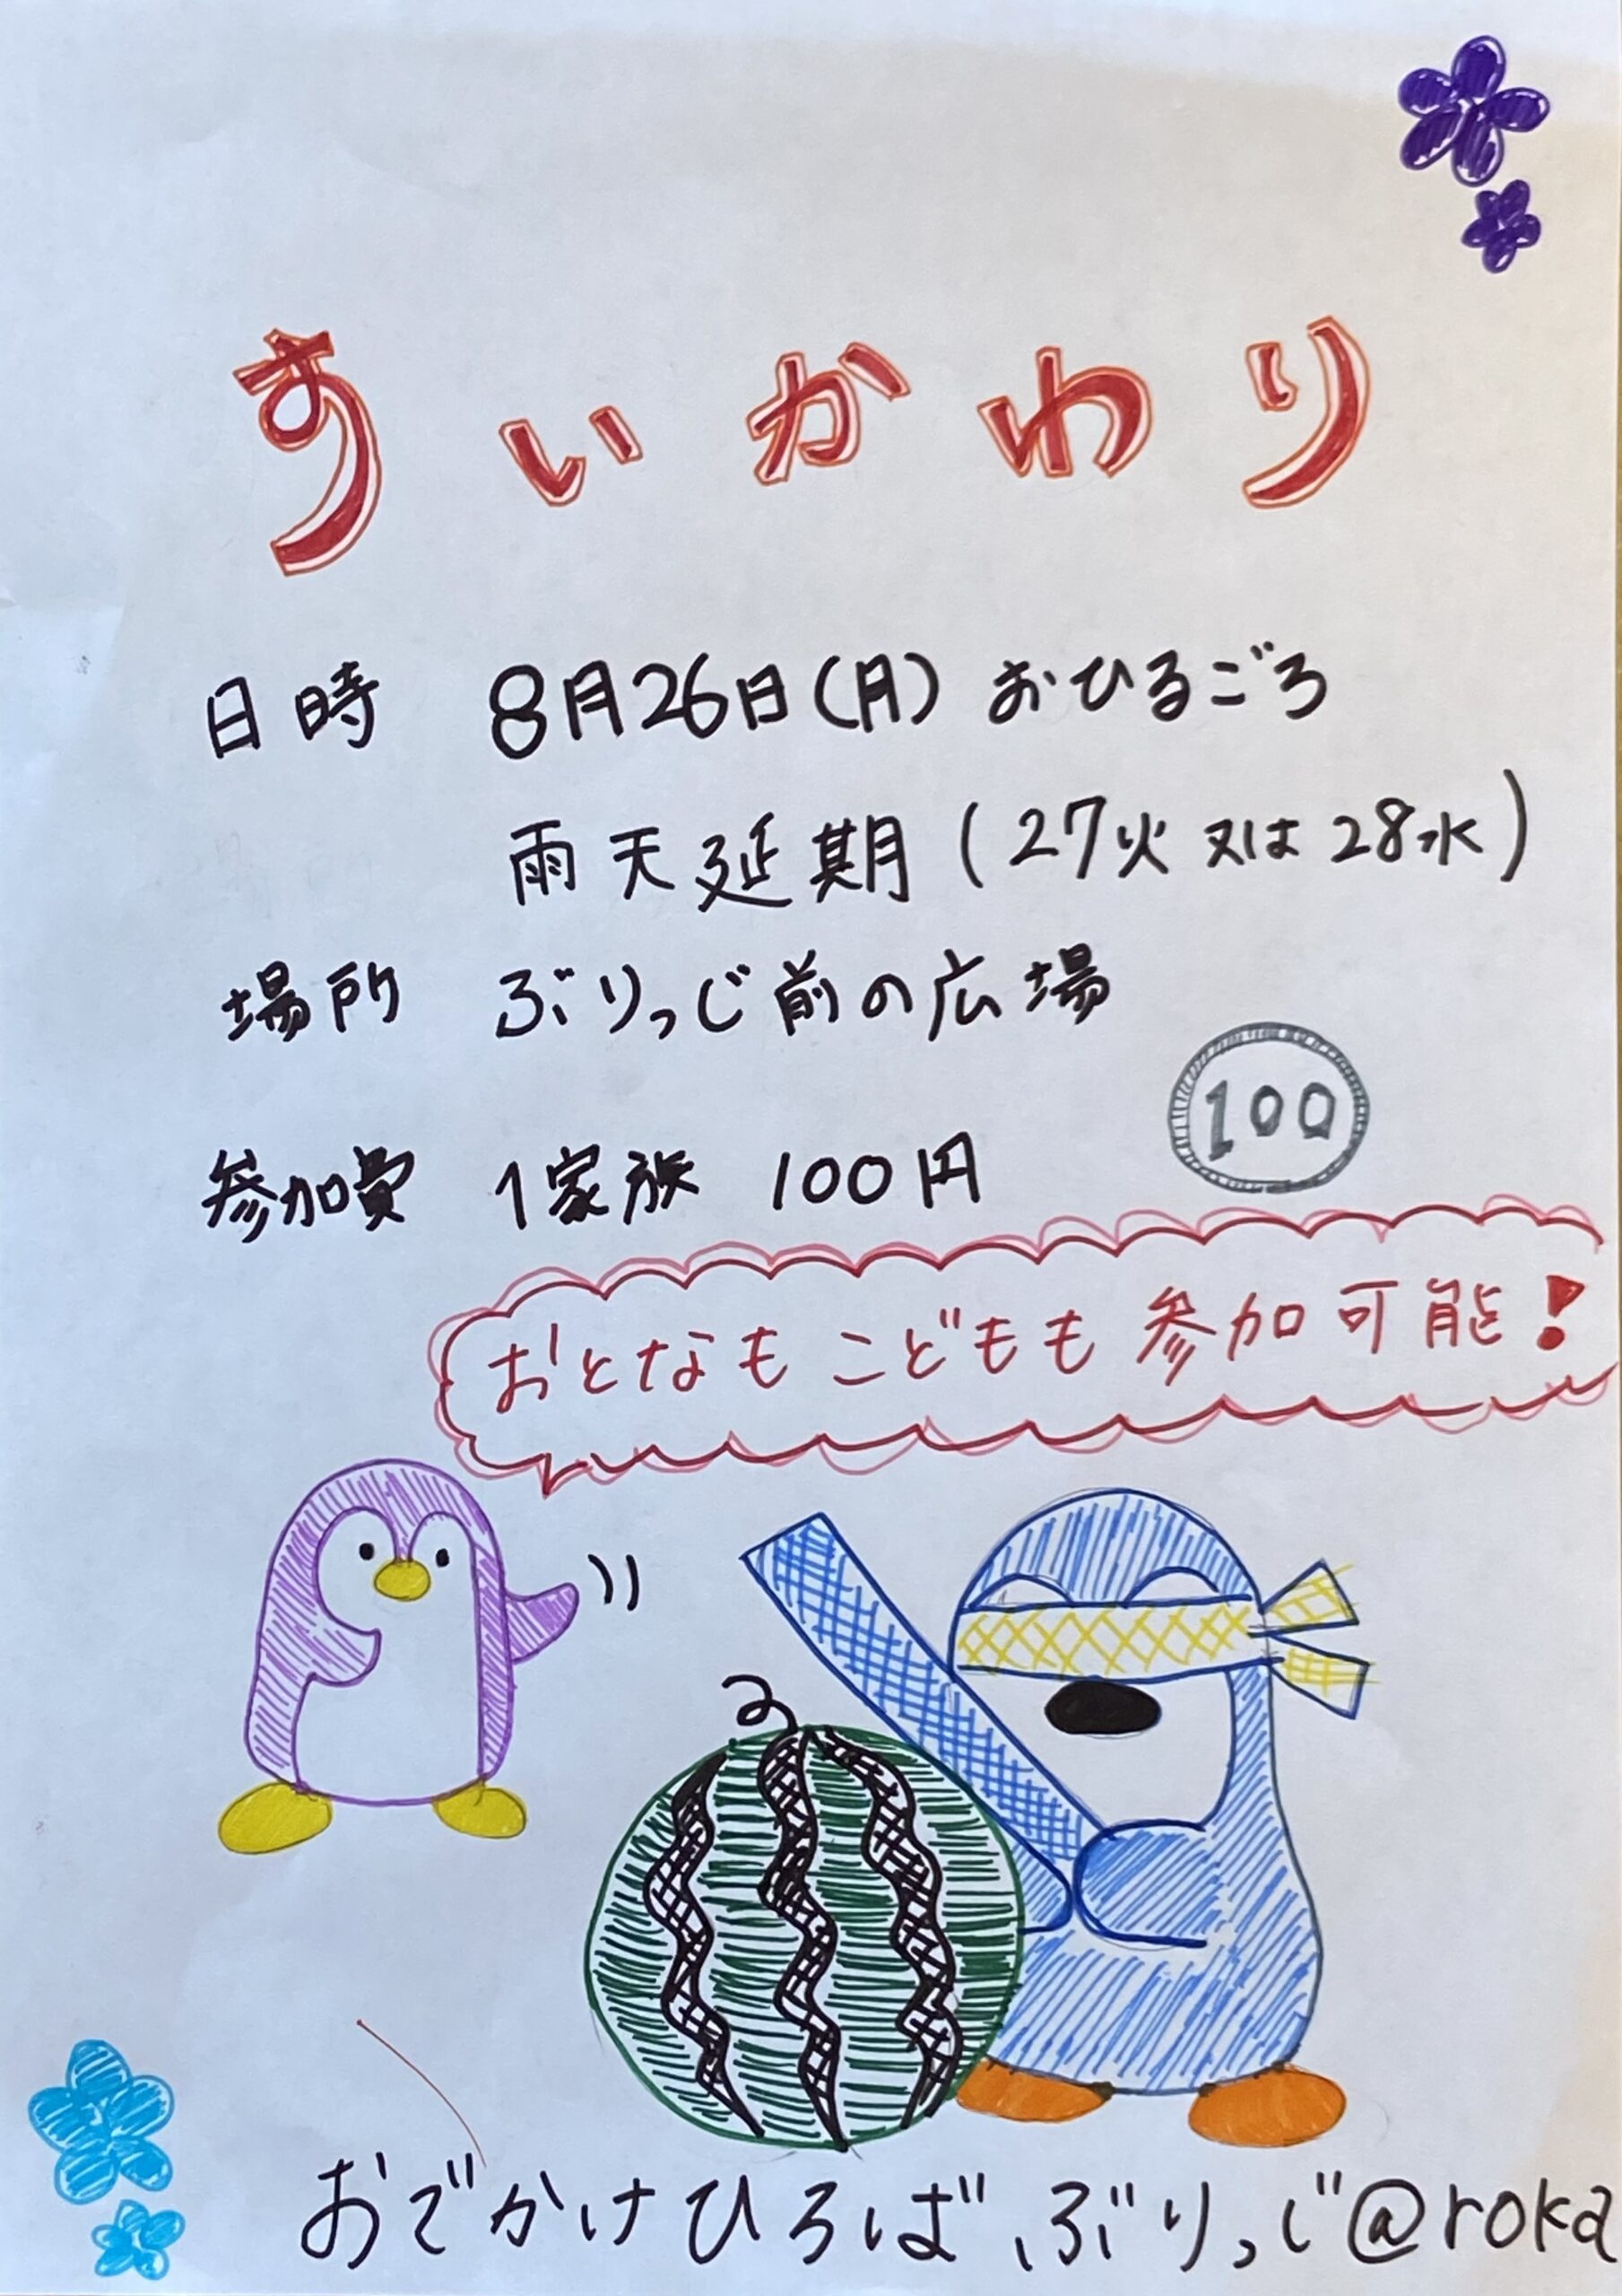 すいかわり
日時 8月26日(月) おひるごろ
雨天延期(27火 又は 28水)
場所 ぶりっじ前の広場
100
参加費 1家族 100円
おとなも こどもも 参加可能!
おでかけひろば ぶりっじ@roka